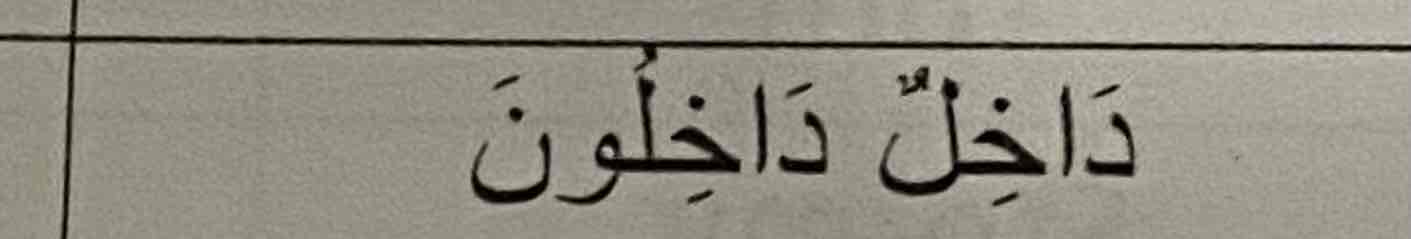 دَاخِلٌ دَاخِلُونَ